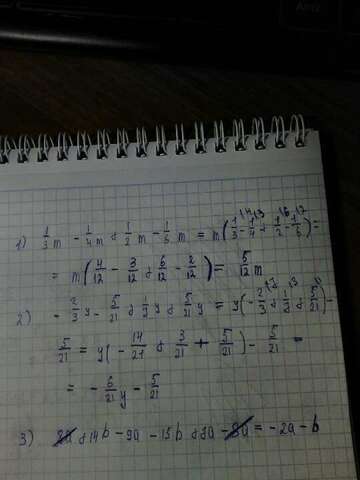 1) 1/3 m - 1/4 m + 1/2 m - 1/6 m = m(1/3 - 1/4 + 1/2 - 1/6) =
= m(4/12 - 3/12 + 6/12 - 2/12) = 5/12 m
2) - 2/3 y - 5/21 + 1/7 y + 5/21 y = y(- 2/3 + 1/7 + 5/21) -
5/21 = y(- 14/21 + 3/21 + 5/21) - 5/21 =
= - 6/21 y - 5/21
3) 8a + 14b - 9a - 15b + 7a - 8a = -2a - b